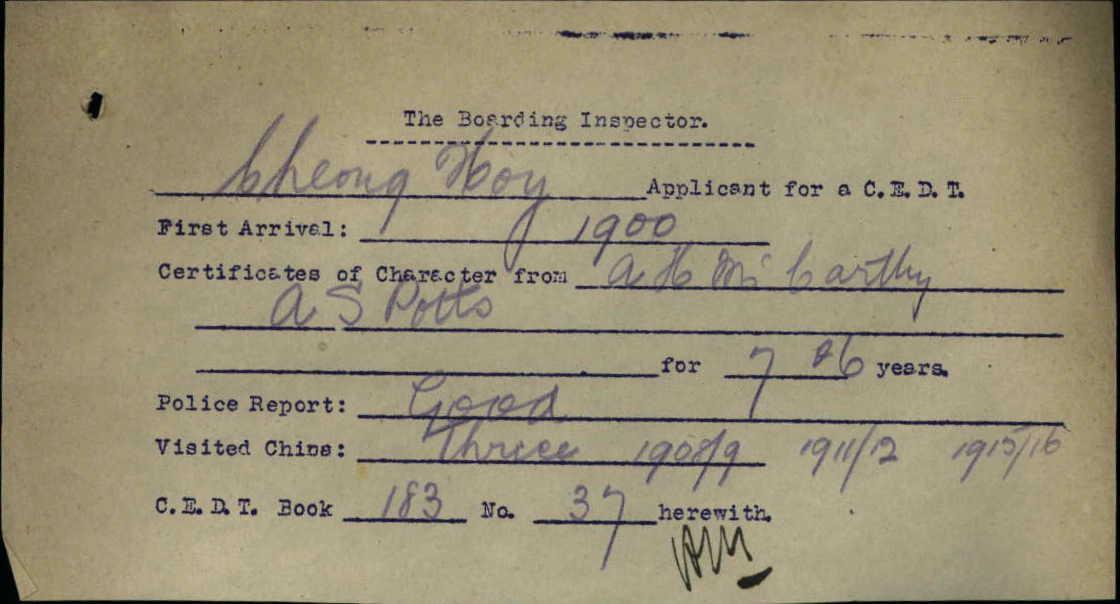 The Boarding Inspector.
Cheong Hoy Applicant for a C.E.D.T.
First Arrival: 1900
Certificates of Character from A H McCarthy
A S Potts
for 7 & 6 years.
Police Report: Good
Visited China: Thrice 1908/9 1911/12 1915/16
C.E.D.T. Book 183 No. 37 herewith.